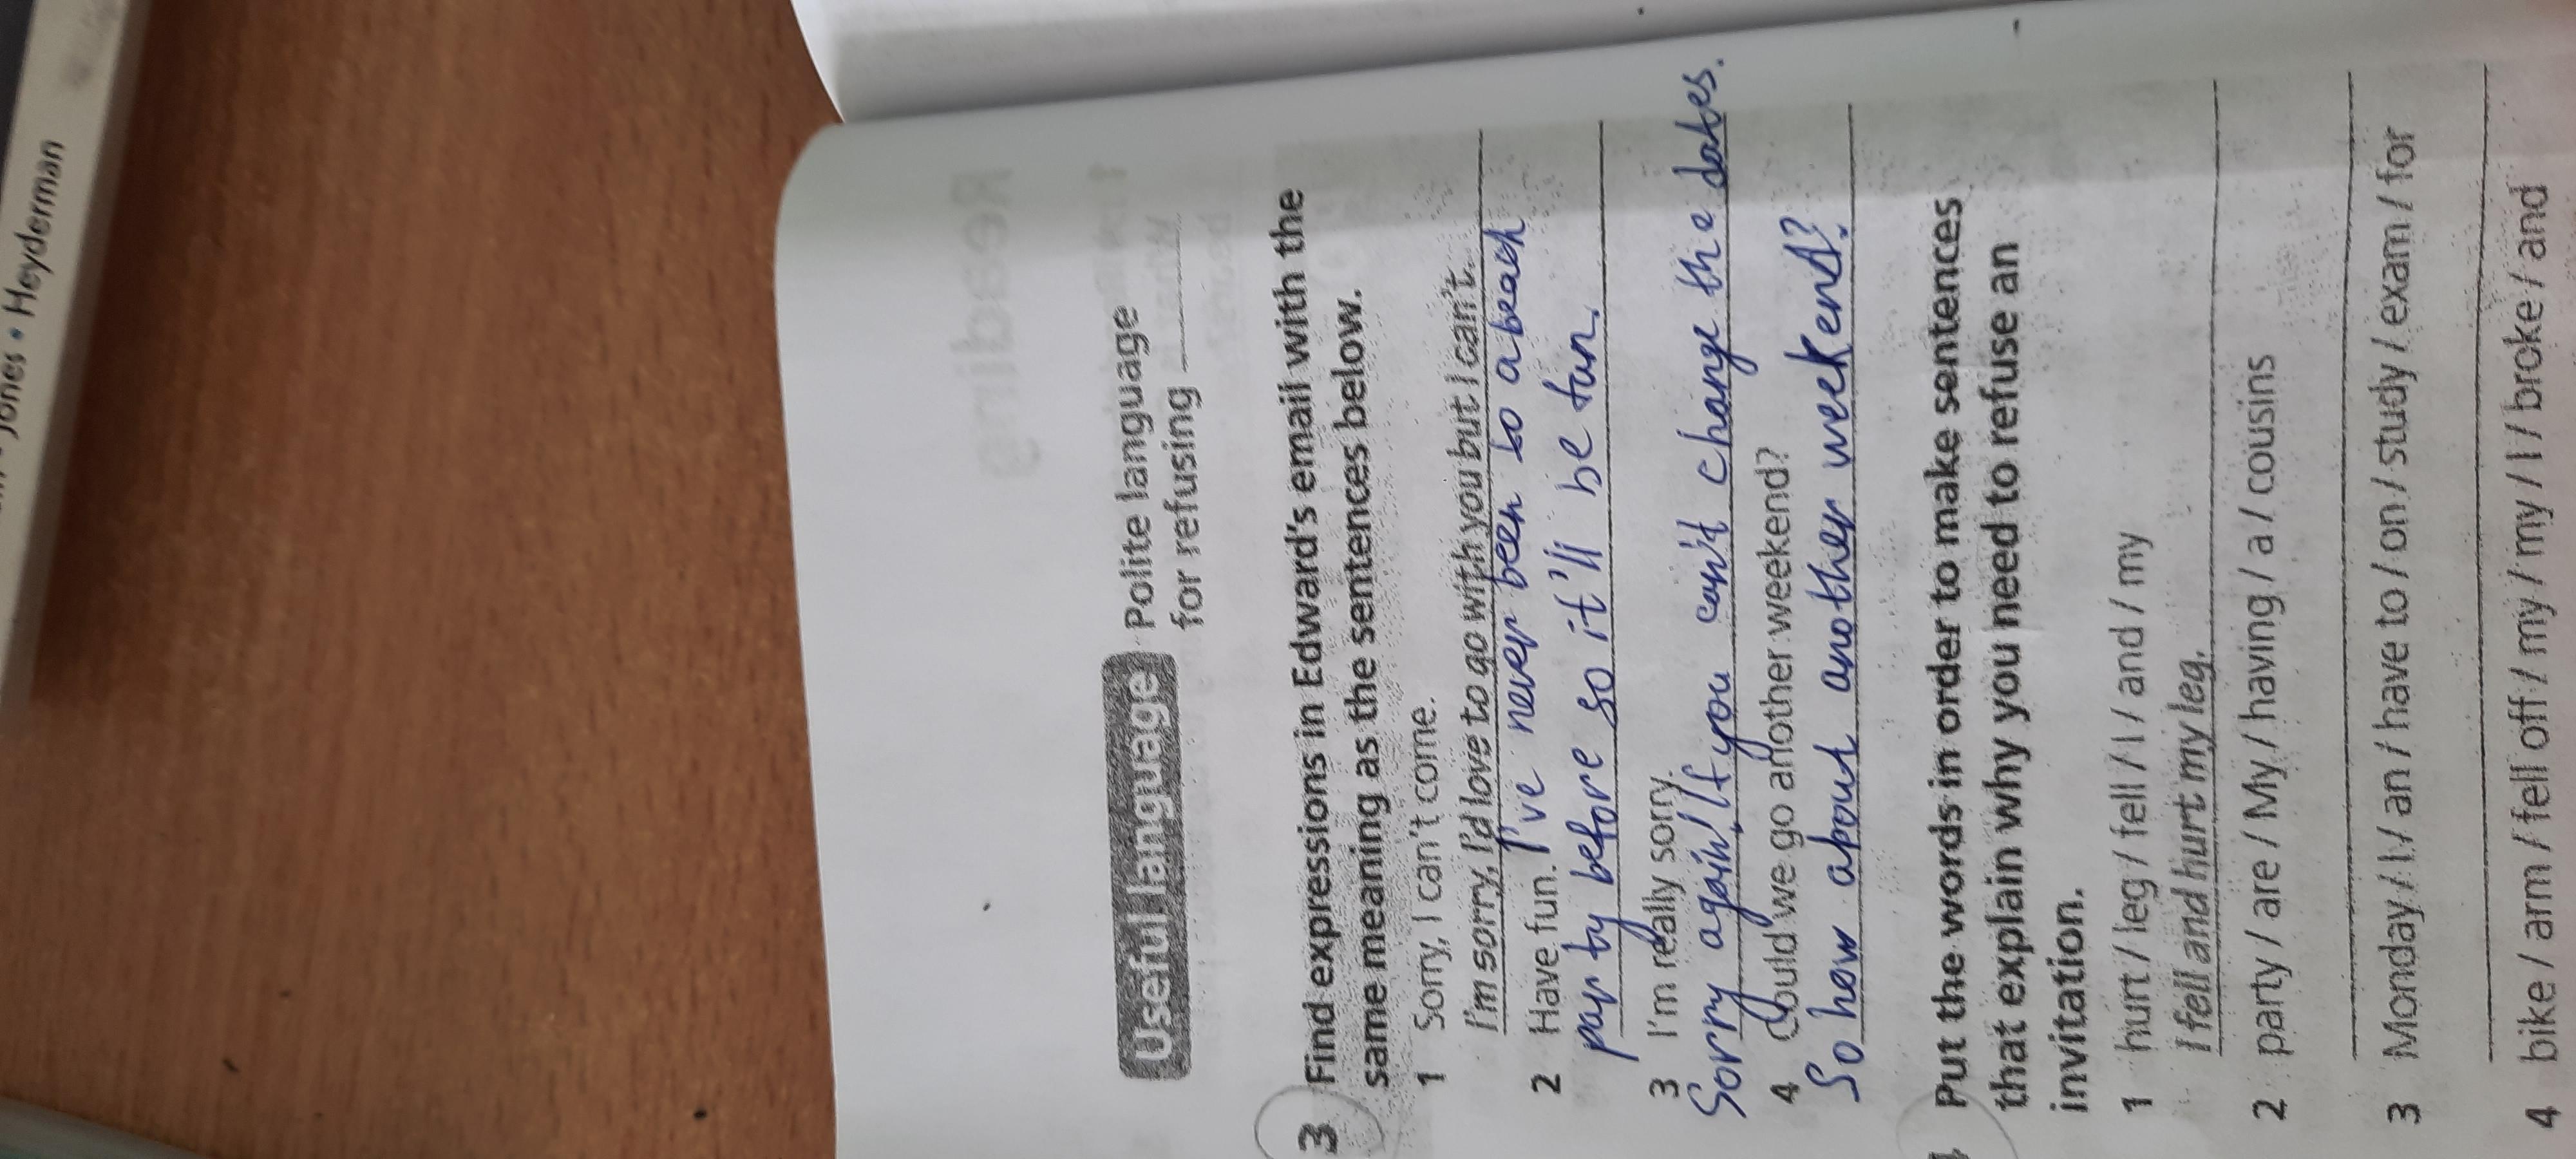 Jones • Heyderman
Reading
Useful language Polite language
for refusing
3 Find expressions in Edward's email with the
same meaning as the sentences below.
1 Sorry, I can't come.
I'm sorry, I'd love to go with you but I can't.
2 Have fun. I've never been to a beach
party before so it'll be fun.
3 I'm really sorry.
Sorry again! If you can't change the dates.
4 Could we go another weekend?
So how about another weekend?
Put the words in order to make sentences
that explain why you need to refuse an
invitation.
1 hurt / leg / fell / I / and / my
I fell and hurt my leg.
2 party / are / My / having / a / cousins
3 Monday / I / an / have to / on / study / exam / for
4 bike / arm / fell off / my / my / I / broke / and